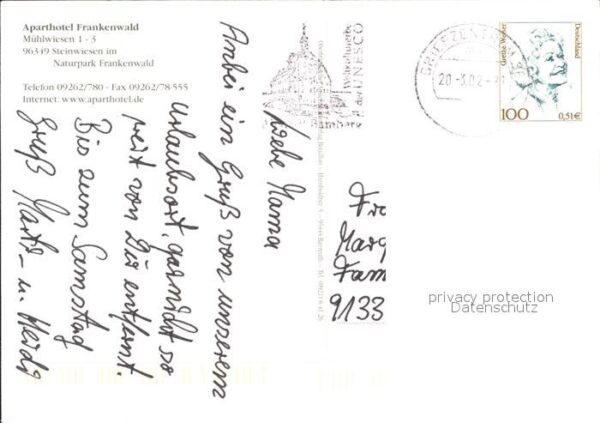 Aparthotel Frankenwald
Mühlwiesen 1 - 3
96349 Steinwiesen im
Naturpark Frankenwald
Telefon 09262/780 - Fax 09262/78-555
Internet: www.aparthotel.de
Liebe Mama
Anbei ein Gruß von unserem
Urlaubsort, garnicht so
weit von Dir entfernt.
Bis zum Samstag
Gruß u. Heidi
Bamberg
Weltkulturerbe
der UNESCO
BRIEFZENTRUM
20 -3.02
Grethe Weiser
Deutschland
100
0,51€
Fr
Marg
Fam
9133
privacy protection
Datenschutz